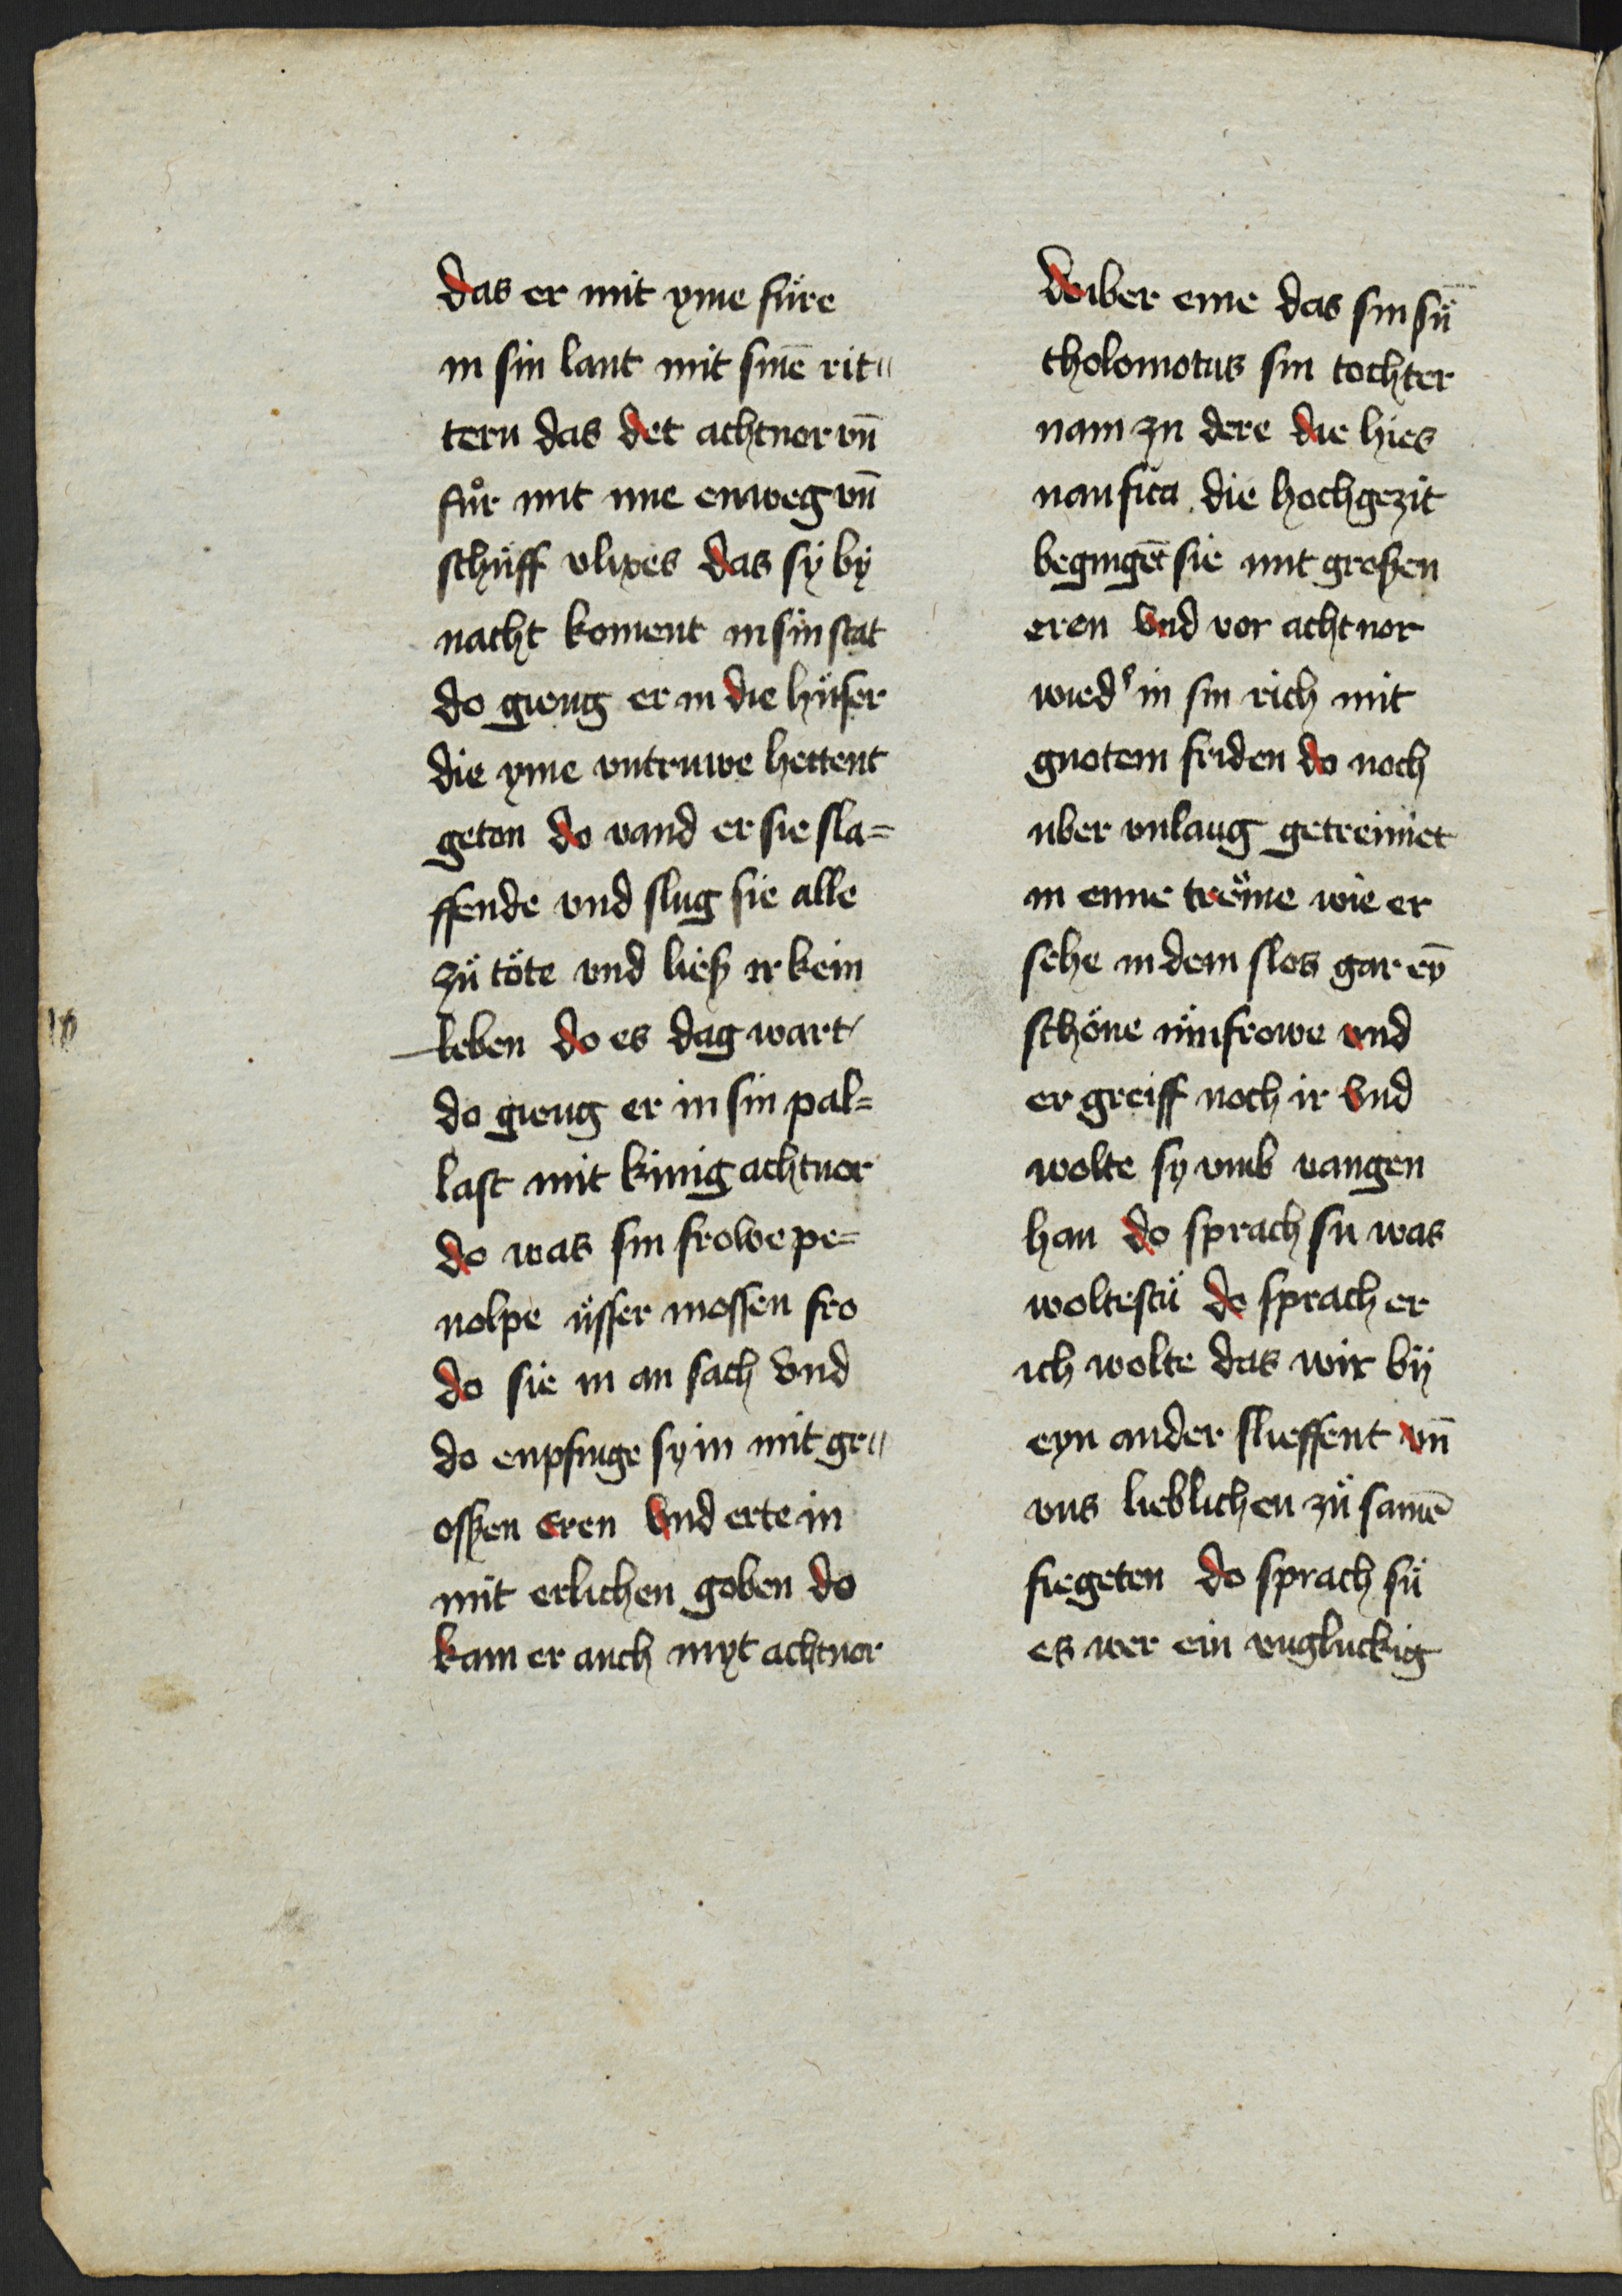 das er mit yme füre
in sin lant mit sinē rit〃
tern das det achtnor vn̄
fůr mit ime enweg vn̄
schüff vlixes das sÿ bÿ
nacht koment in sin stat
do gieng er in die hüser
die yme vntruwe hettent
geton do vand er sie sla=
ffende vnd slug sie alle
zü töte vnd liesz ir kein
leben do es dag wart
do gieng er in sin pal=
last mit kinig achtnor
do was sin frowe pe=
nolpe üsser mossen fro
do sie in an sach vnd
do enpfinge sy in mit gr〃
oszen eren vnd erte in
mit erlichen goben do
kam er auch myt achtnor
wiber eine das sin sǖ
tholomotus sin tochter
nam zu dere die hies
naufica die hochgezit
begingēt sie mit groszen
eren vnd vor achtnor
wiedʾ in sin rich mit
guotem friden do noch
uber vnlang getreimet
in eime tröme wie er
sehe in dem slos gar eȳ
schöne iünfrowe vnd
er greiff noch ir vnd
wolte sy vmb vangen
han do sprach su was
woltestü do sprach er
ich wolte das wir bÿ
eyn ander slieffent vn̄
vns lieblichen zü samē
fiegeten do sprach sü
es wer ein vngluckig